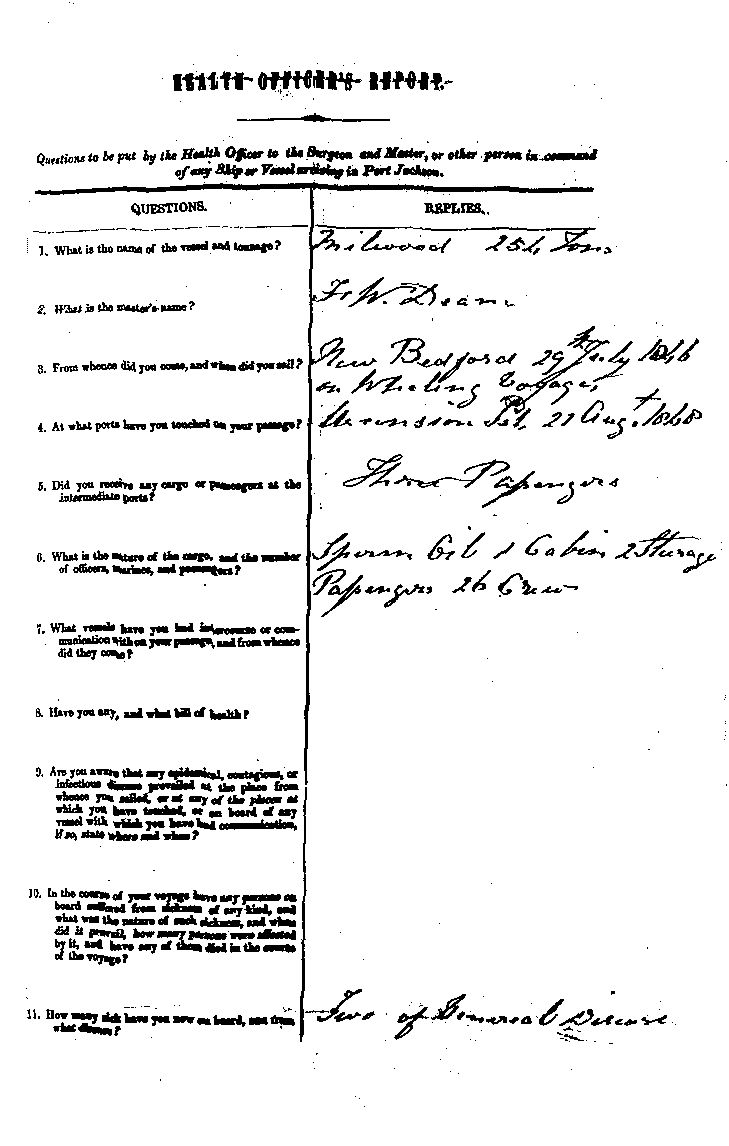 HEALTH OFFICER'S REPORT.
Questions to be put by the Health Officer to the Surgeon and Master, or other person in command
of any Ship or Vessel arriving in Port Jackson.
QUESTIONS.
REPLIES.
1. What is the name of the vessel and tonnage?
Milwood 254 Tons
2. What is the master's name?
W. Deane
3. From whence did you come, and when did you sail?
New Bedford 29th July
on Whaling Voyages
4. At what ports have you touched on your passage?
21 Augt
5. Did you receive any cargo or passengers at the
intermediate ports?
Three Passengers
6. What is the nature of the cargo, and the number
of officers, marines, and passengers?
Sperm Oil 1 Cabin 2 Sturage
Passengers 26 Crew
7. What vessels have you had intercourse or com-
munication with on your passage, and from whence
did they come?
8. Have you any, and what bill of health?
9. Are you aware that any epidemical, contagious, or
infectious disease prevailed at the place from
whence you sailed, or at any of the places at
which you have touched, or on board of any
vessel with which you have had communication,
If so, state where and when?
10. In the course of your voyage have any persons on
board suffered from sickness of any kind, and
what was the nature of such sickness, and when
did it prevail, how many persons were affected
by it, and have any of them died in the course
of the voyage?
11. How many sick have you now on board, and from
what disease?
Two of Disease